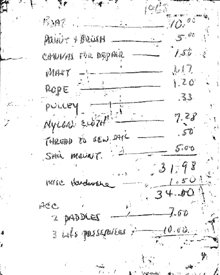 1968
BOAT 10.00
PAINT & BRUSH 5.00
CANVAS FOR REPAIR 1.50
MAST 1.17
ROPE 1.20
PULLEY .33
NYLON CLOTH 7.28
THREAD TO SEW SAIL .50
SAIL MOUNT 5.00
31.98
MISC Hardware 1.50
34.00
ACC
2 PADDLES 7.00
3 LIFE PRESERVERS 10.00